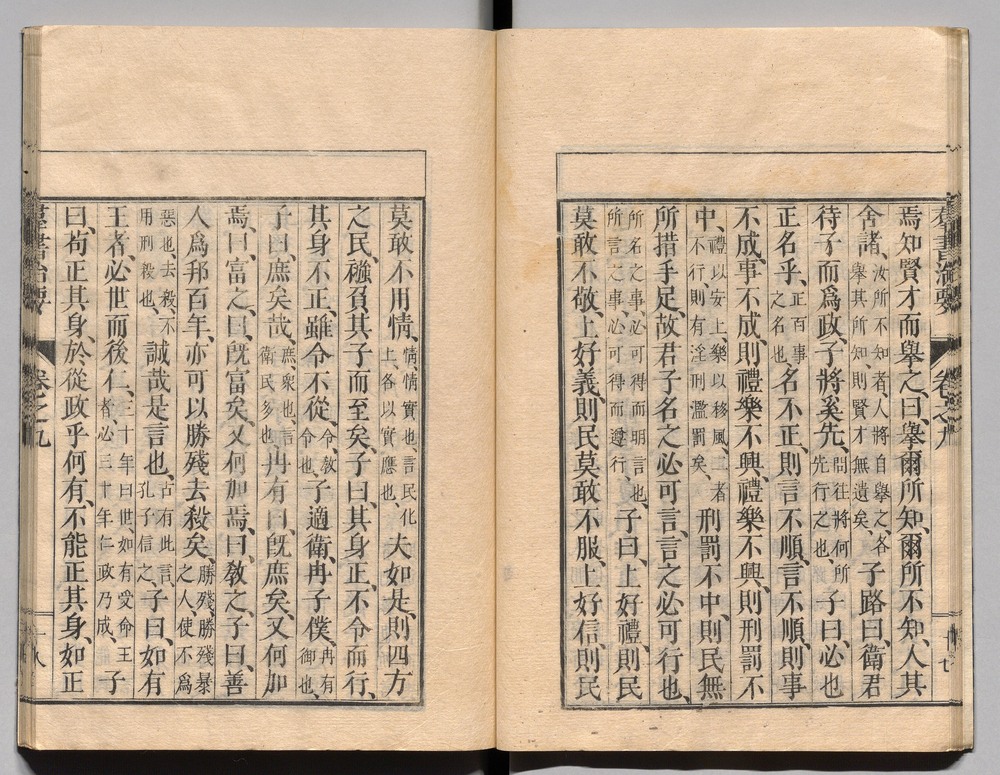 焉知賢才而舉之、曰、舉爾所知、爾所不知、人其
舍諸、汝所不知者、人將自舉之、各舉其所知、則賢才無遺矣、子路曰、衛君
待子而爲政、子將奚先、問往將何所先行之也、子曰、必也
正名乎、正百事之名也、名不正、則言不順、言不順、則事
不成、事不成、則禮樂不興、禮樂不興、則刑罰不
中、禮以安上、樂以移風、二者不行、則有淫刑濫罰矣、刑罰不中、則民無
所措手足、故君子名之必可言、言之必可行也、
所名之事、必可得而明言也、所言之事、必可得而遵行、子曰、上好禮、則民
莫敢不敬、上好義、則民莫敢不服、上好信、則民
莫敢不用情、情、情實也、言民化上、各以實應也、夫如是、則四方
之民、襁負其子而至矣、子曰、其身正、不令而行、
其身不正、雖令不從、令、敎令也、子適衛、冉子僕、冉有御也、
子曰、庶矣哉、庶、衆也、言衛民多也、冉有曰、旣庶矣、又何加
焉、曰、富之、曰、旣富矣、又何加焉、曰、敎之、子曰、善
人爲邦百年、亦可以勝殘去殺矣、勝殘、勝殘暴之人、使不爲
惡也、去殺、不用刑殺也、誠哉是言也、古有此言、孔子信之、子曰、如有
王者、必世而後仁、三十年曰世、如有受命王者、必三十年仁政乃成、子
曰、苟正其身、於從政乎何有、不能正其身、如正
羣書治要
卷之九